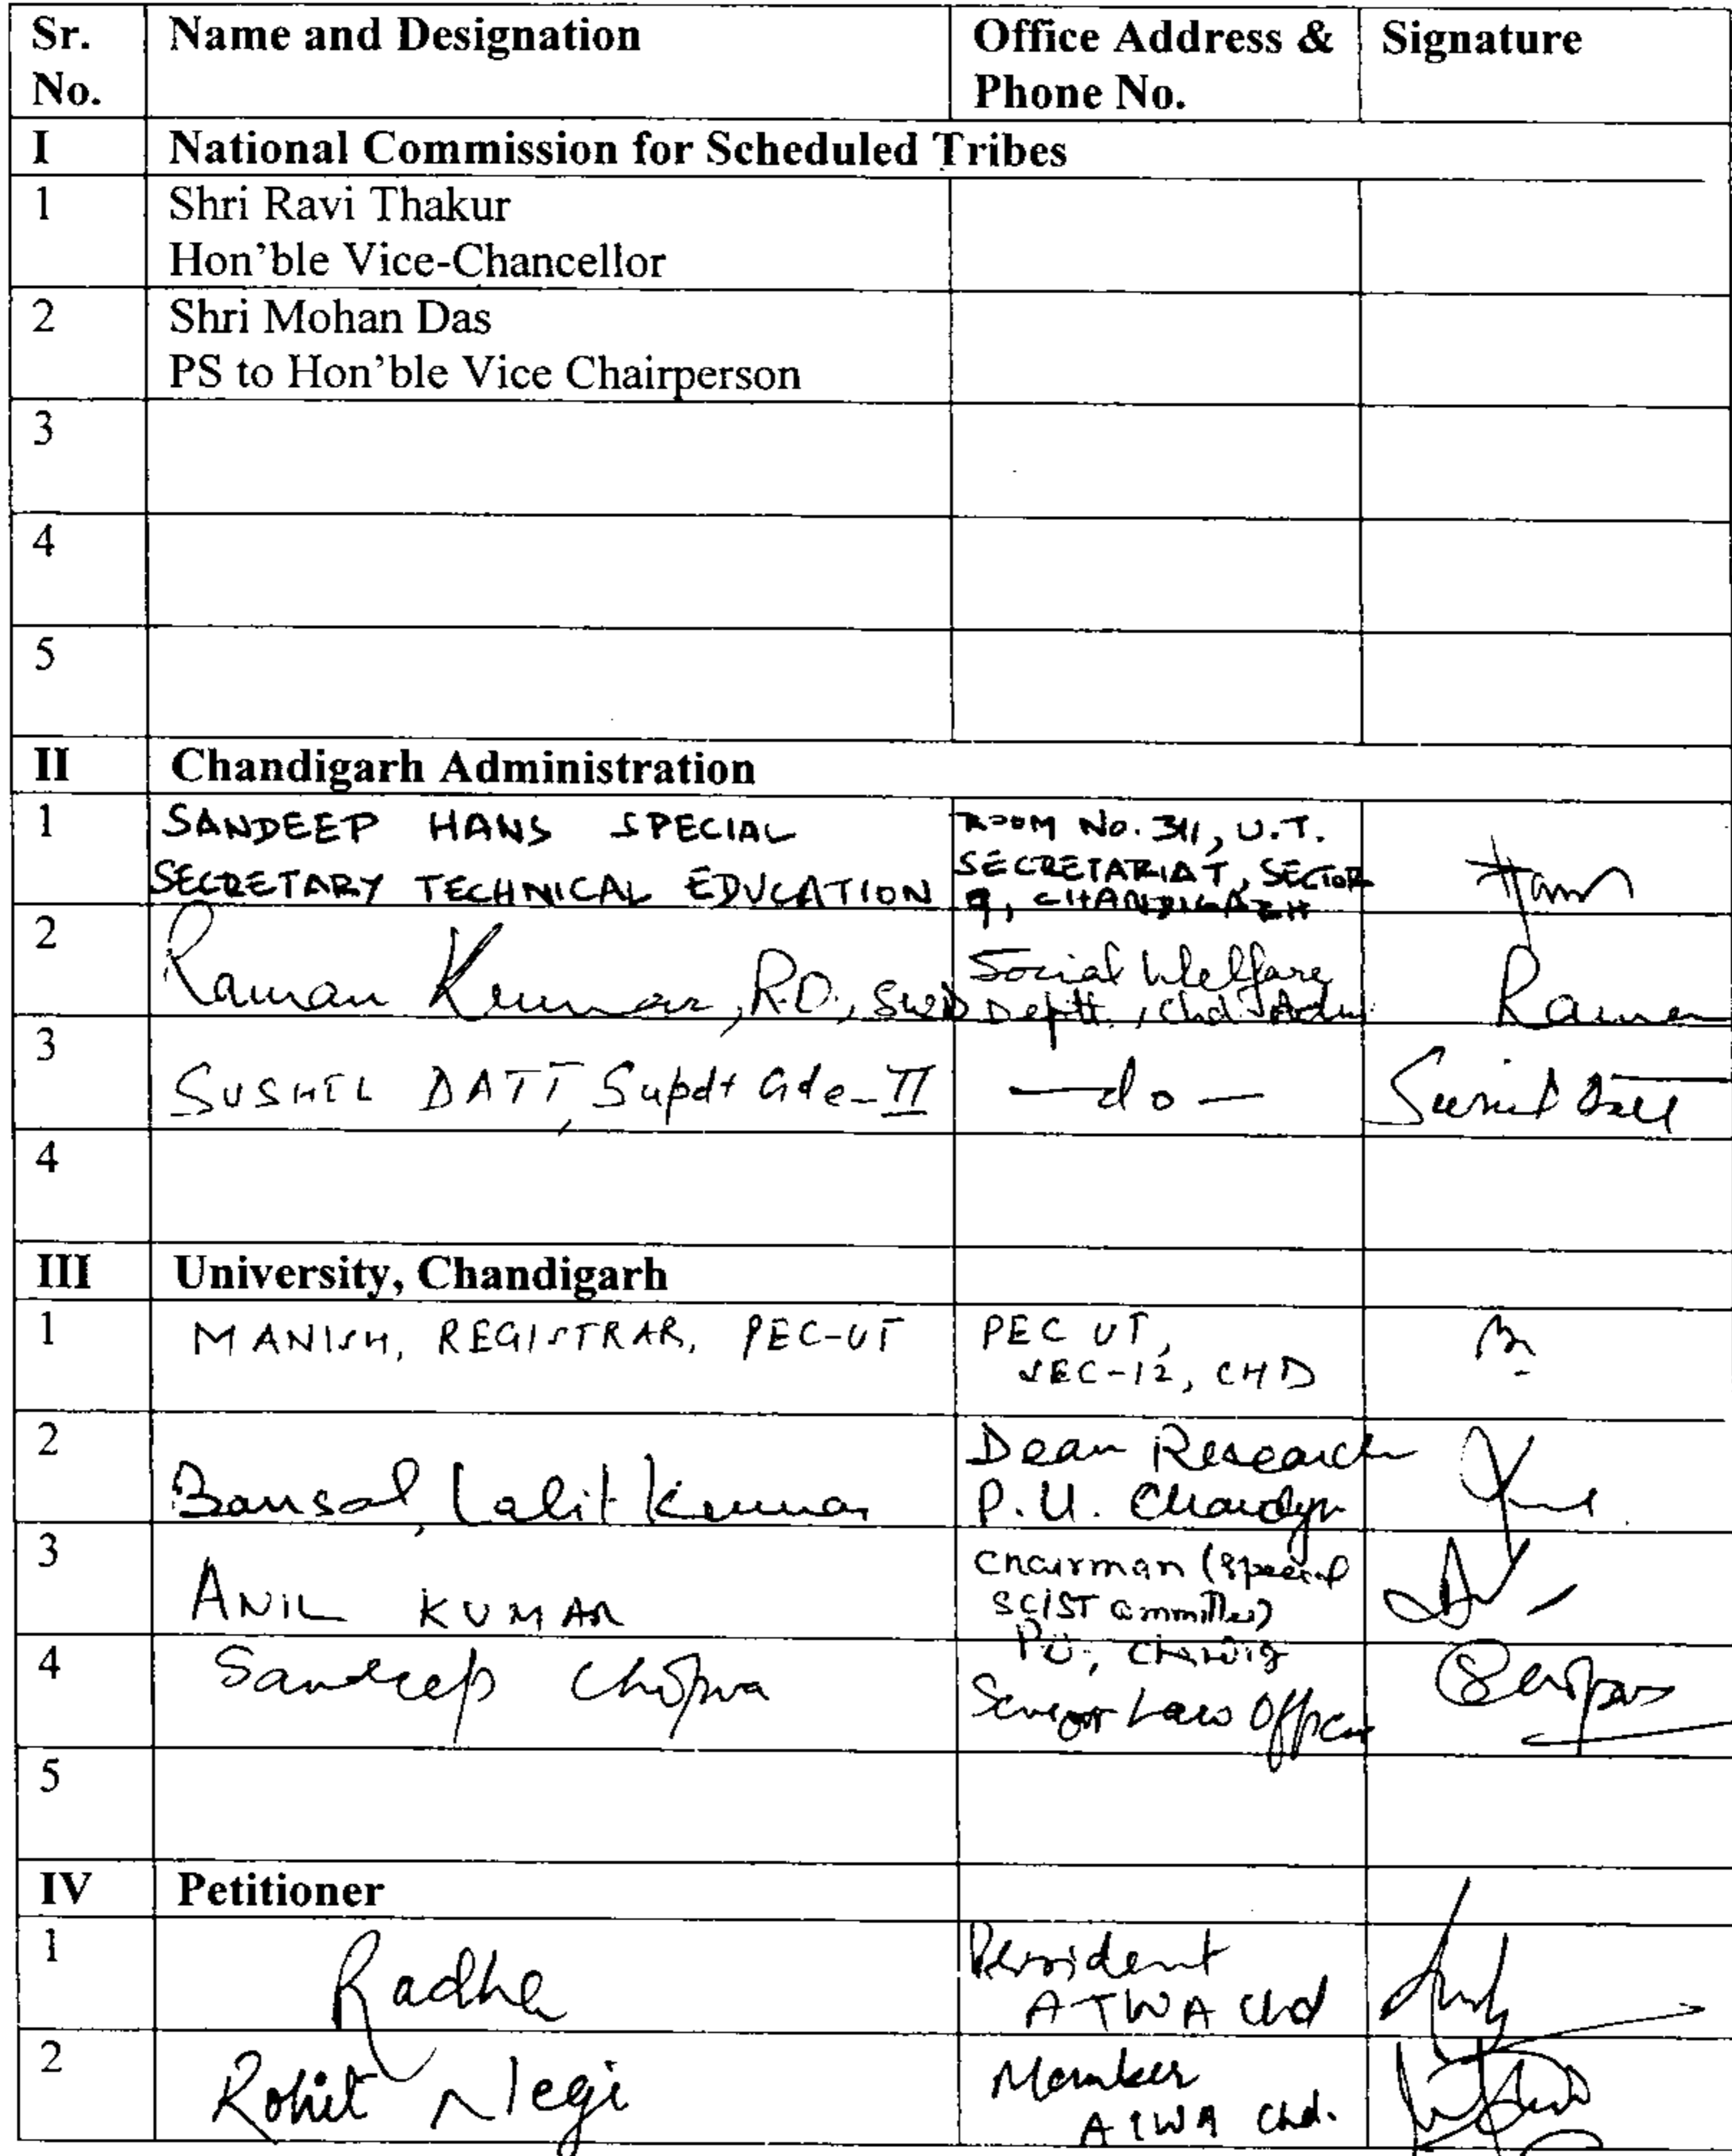 Sr. No. Name and Designation Office Address & Phone No. Signature
I National Commission for Scheduled Tribes
1 Shri Ravi Thakur
Hon'ble Vice-Chancellor
2 Shri Mohan Das
PS to Hon'ble Vice Chairperson
3
4
5
II Chandigarh Administration
1 SANDEEP HANS SPECIAL
SECRETARY TECHNICAL EDUCATION
ROOM No. 311, U.T.
SECRETARIAT, SECTOR
9, CHANDIGARH
2 Raman Kumar, R.O., SWD
Social Welfare
Deptt., Chd Adm
Raman
3 SUSHIL DATT, Supdt Gde-II
—do—
4
III University, Chandigarh
1 MANISH, REGISTRAR, PEC-UT
PEC UT,
SEC-12, CHD
2 Bansal, Lalit Kumar
Dean Research
P.U.
3 ANIL KUMAR
Chairman (Special
SC/ST Committee)
PU,
4 Sandeep Chopra
Senior Law Officer
5
IV Petitioner
1 Radhe
President
ATWA Chd
2 Rohit Negi
Member
ATWA Chd.